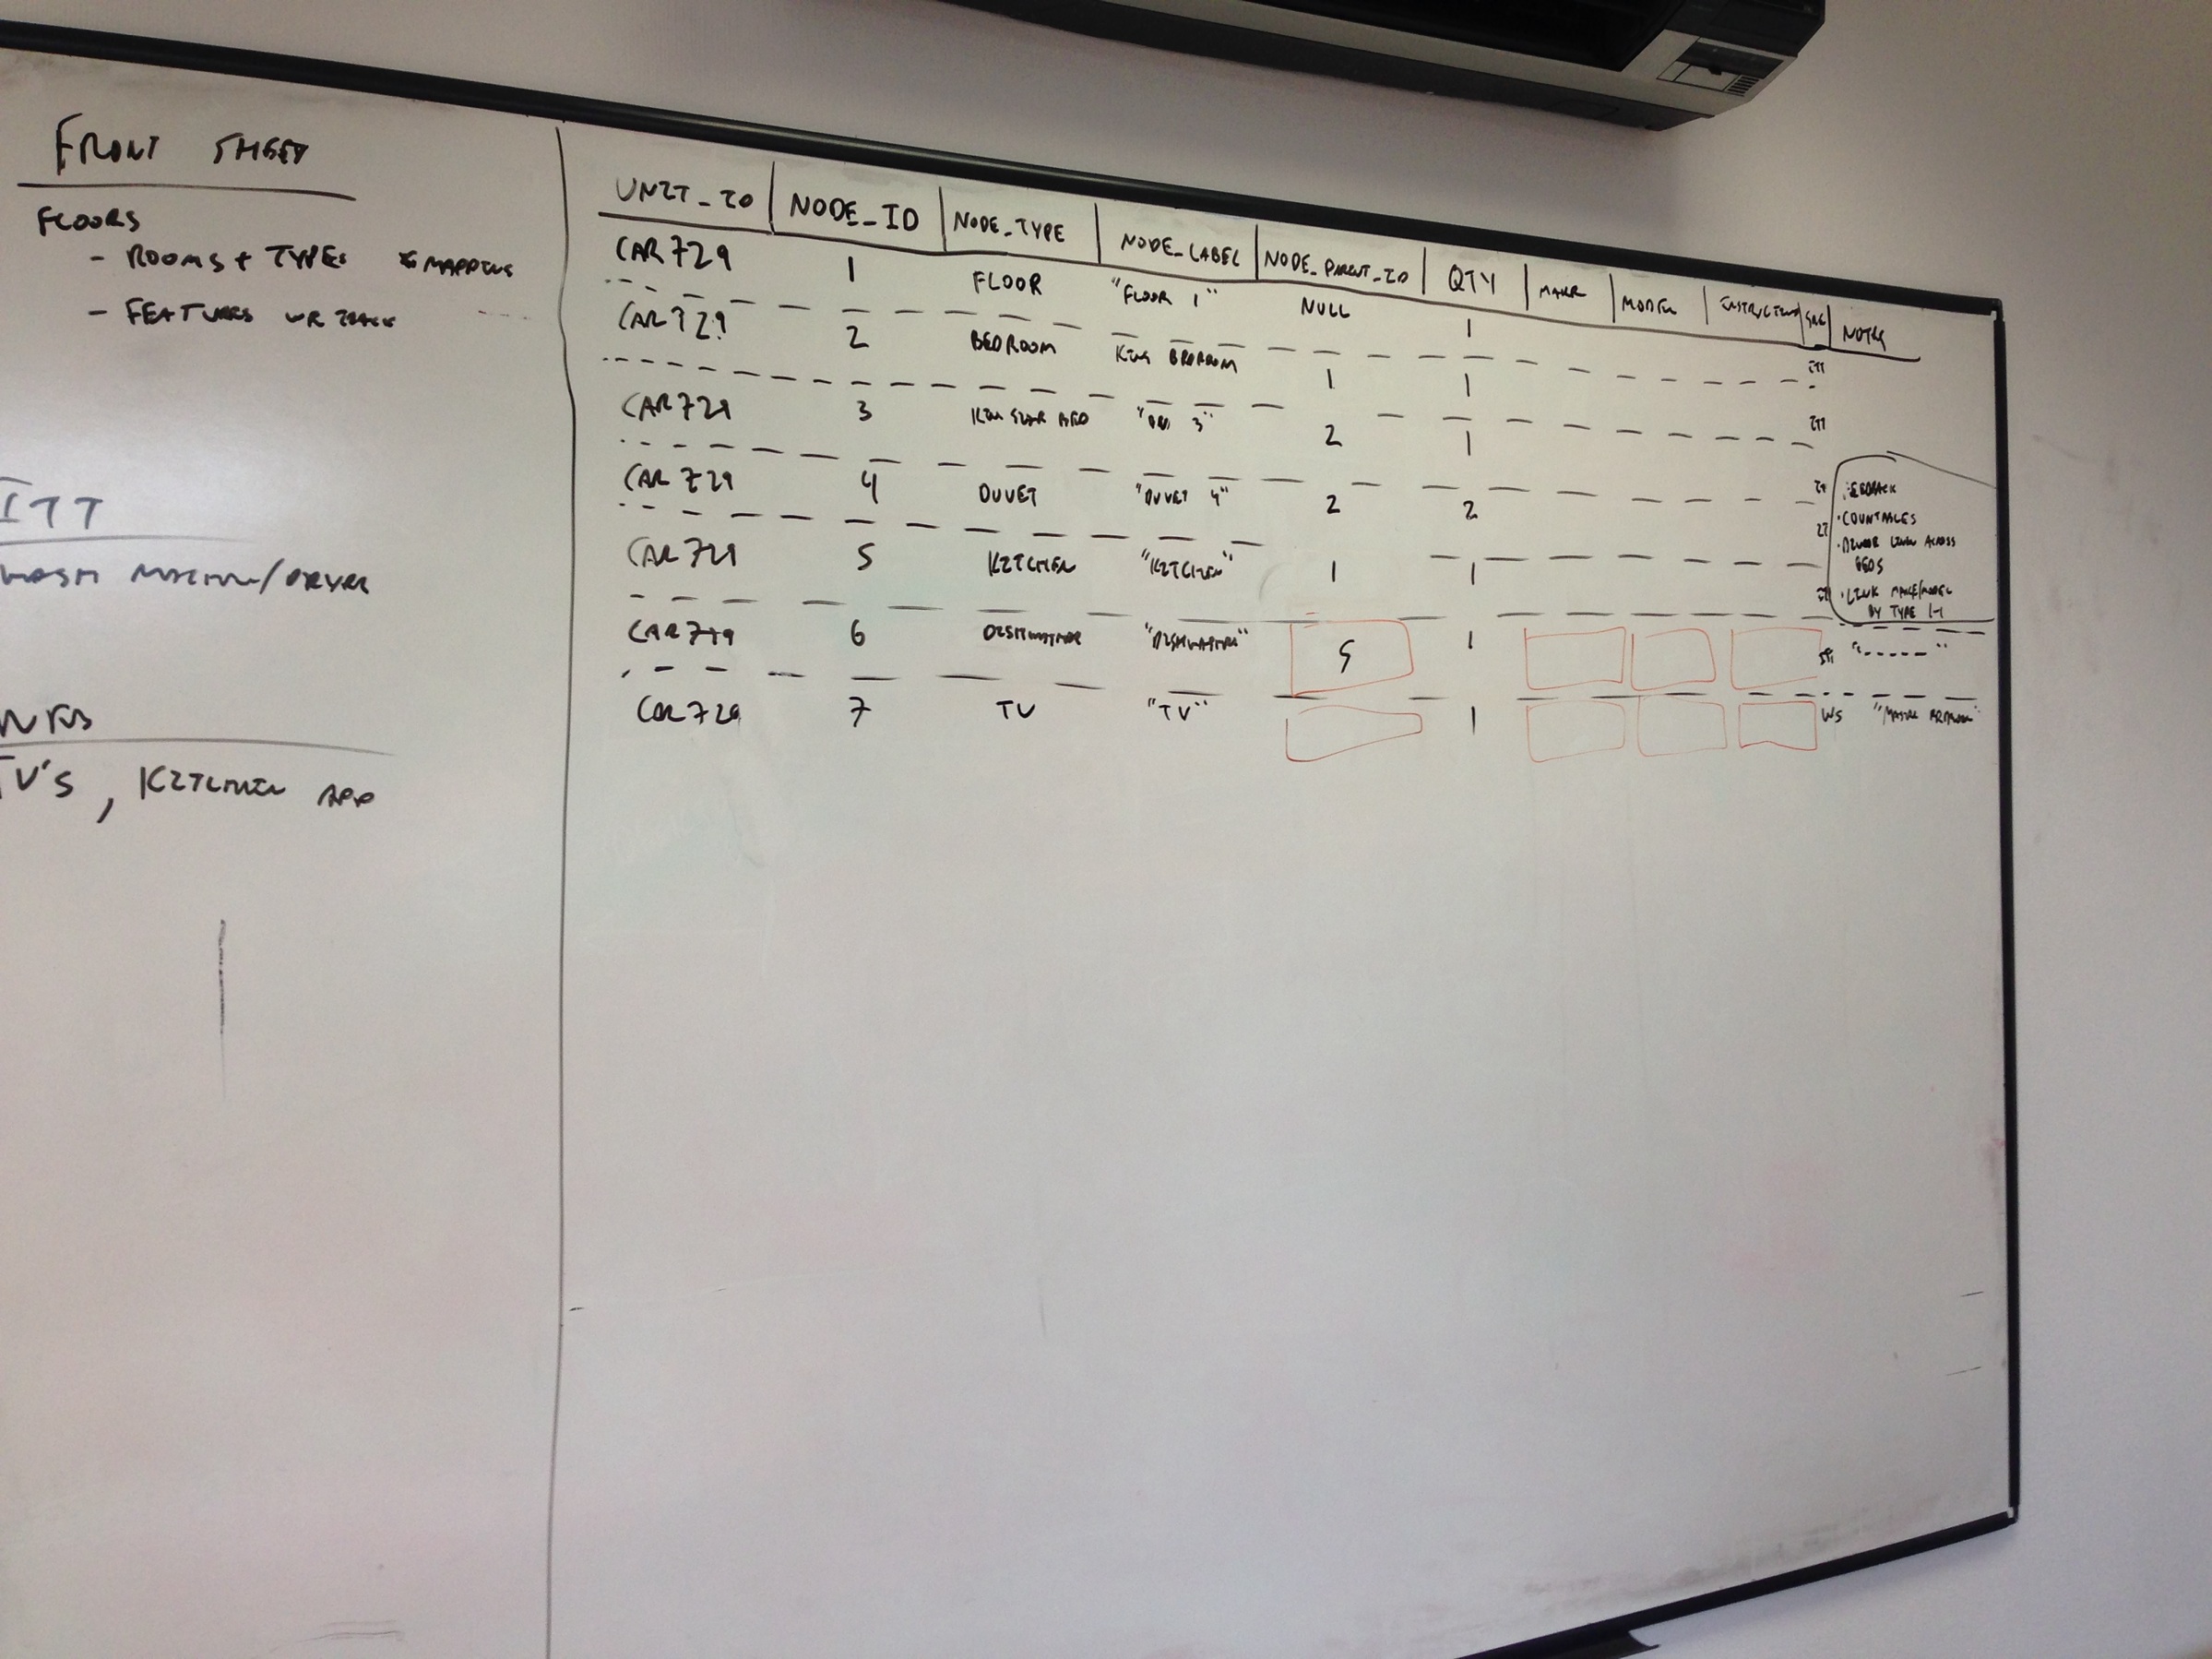 FRONT SHEET
FLOORS
- ROOMS + TYPES * MAPPING
- FEATURES WE TRACK
ITT
WASH MACHINE/DRYER
TV'S, KITCHEN APP
UNIT_ID NODE_ID NODE_TYPE NODE_LABEL NODE_PARENT_ID QTY MAKE MODEL INSTRUCTIONS SRC NOTES
CAR729 1 FLOOR "FLOOR 1" NULL 1 ITT
CAR729 2 BEDROOM KING BEDROOM 1 1 ITT
CAR729 3 KING SIZE BED 3" 2 1
CAR729 4 DUVET "DUVET 4" 2 2
CAR729 5 KITCHEN "KITCHEN" 1 1
CAR729 6 DISHWASHER "DISHWASHER" 5 1 "------"
CAR729 7 TV "TV" 1 WS "MASTER BEDROOM"
FEEDBACK
• COUNTABLES
ACROSS
BEDS
• LINK MAKE/MODEL
BY TYPE 1-1